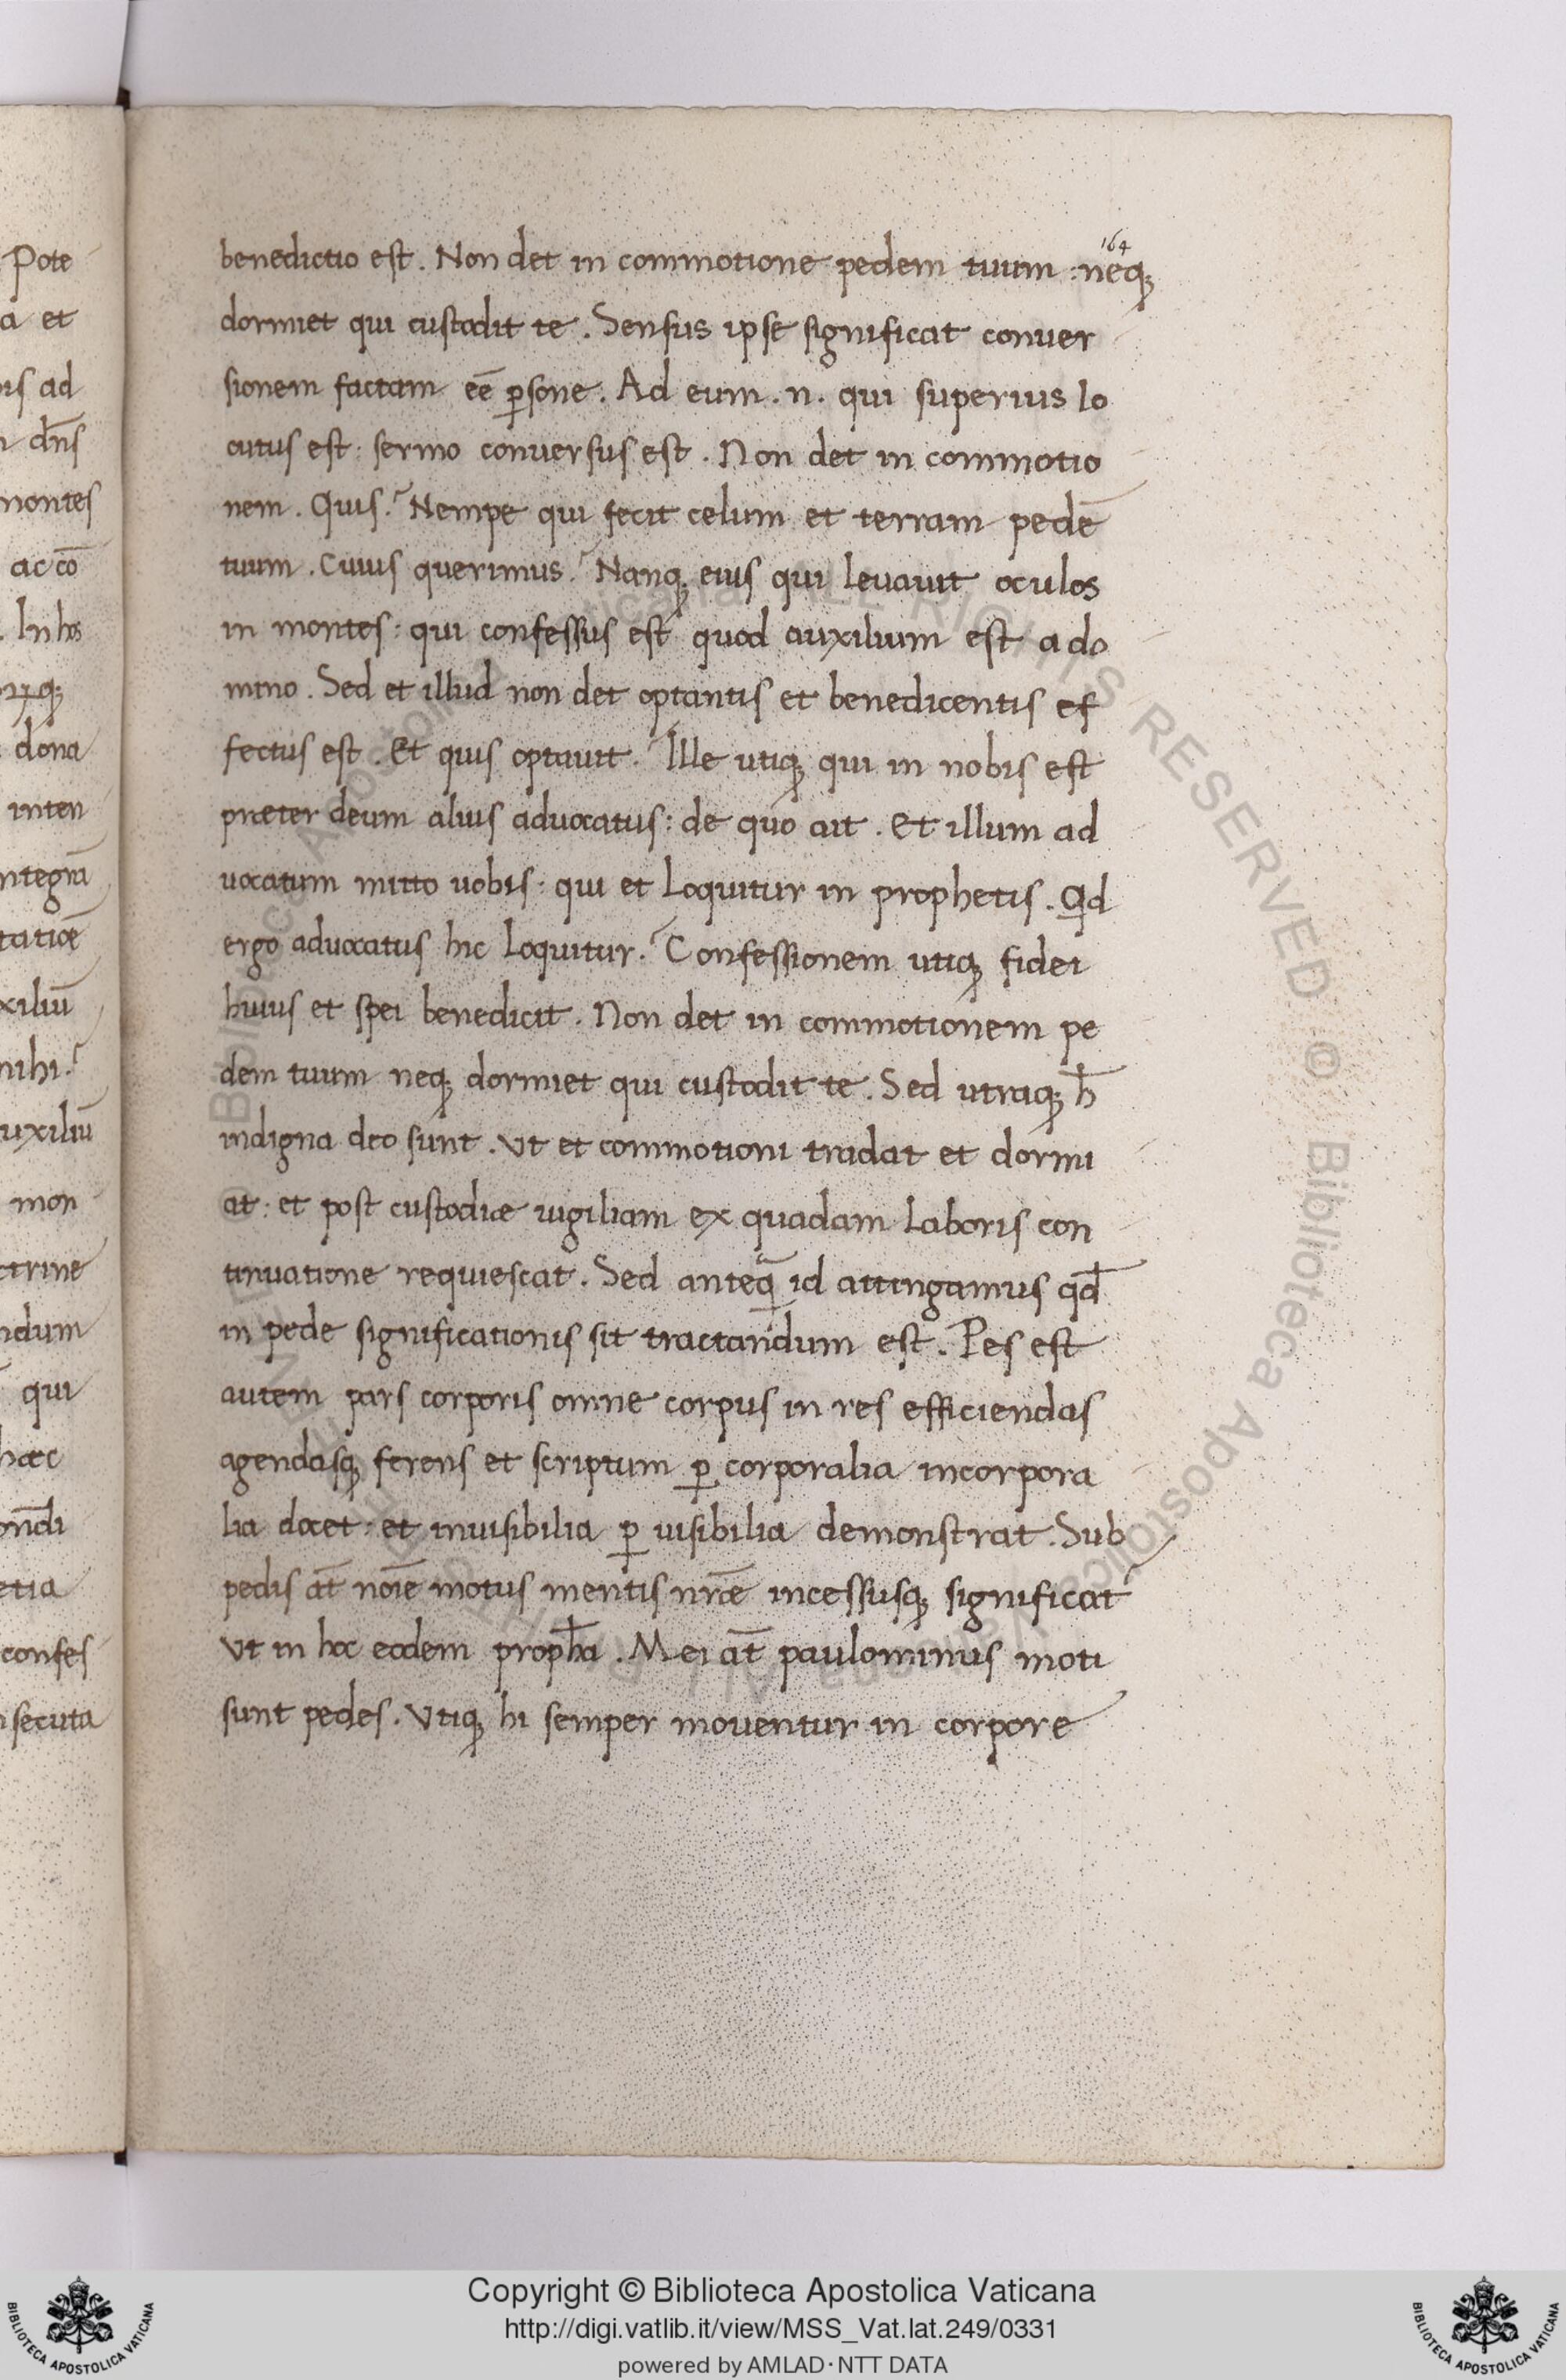 164
benedictio est. Non det in commotione pedem tuum: neq;
dormiet qui custodit te. Sensus ipse significat conuer
sionem factam eē ꝑsone. Ad eum .n. qui superius lo
cutus est: sermo conuersus est. Non det in commotio
nem. Quis? Nempe qui fecit celum et terram pedē
tuum. Cuius querimus? Nanq; eius qui leuauit oculos
in montes: qui confessus est quod auxilium est a do
mino. Sed et illud non det optantis et benedicentis ef
fectus est. Et quis optauit? Ille utiq; qui in nobis est
preter deum alius aduocatus: de quo ait. Et illum ad
uocatum mitto uobis: qui et loquitur in prophetis. Qd
ergo aduocatus hic loquitur? Confessionem utiq; fidei
huius et spei benedicit. Non det in commotionem pe
dem tuum neq; dormiet qui custodit te. Sed utraq; h̄
indigna deo sunt. Vt et commotioni tradat et dormi
at: et post custodiæ uigiliam ex quadam laboris con
tinuatione requiescat. Sed anteq̄ id attingamus qd̄
in pede significationis sit tractandum est. Pes est
autem pars corporis omne corpus in res efficiendas
agendasq; ferens et scriptum ꝑ corporalia incorpora
lia docet: et inuisibilia ꝑ uisibilia demonstrat. Sub
pedis at̄ noīe motus mentis nr̄æ incessusq; significat
Vt in hoc eodem proph̄a. Mei at̄ paulominus moti
sunt pedes. Vtiq; hi semper mouentur in corpore
Pote
a et
is ad
dn̄s
montes
ac cō
In hos
dona
inten
ntegrā
tatiōe
xiliū
mihi?
uxiliū
mon
ctrine
ndum
qui
hæc
etia
confes
secuta
© Biblioteca Apostolica Vaticana ALL RIGHTS RESERVED
Copyright © Biblioteca Apostolica Vaticana
http://digi.vatlib.it/view/MSS_Vat.lat.249/0331
powered by AMLAD·NTT DATA
BIBLIOTECA APOSTOLICA VATICANA
BIBLIOTECA APOSTOLICA VATICANA